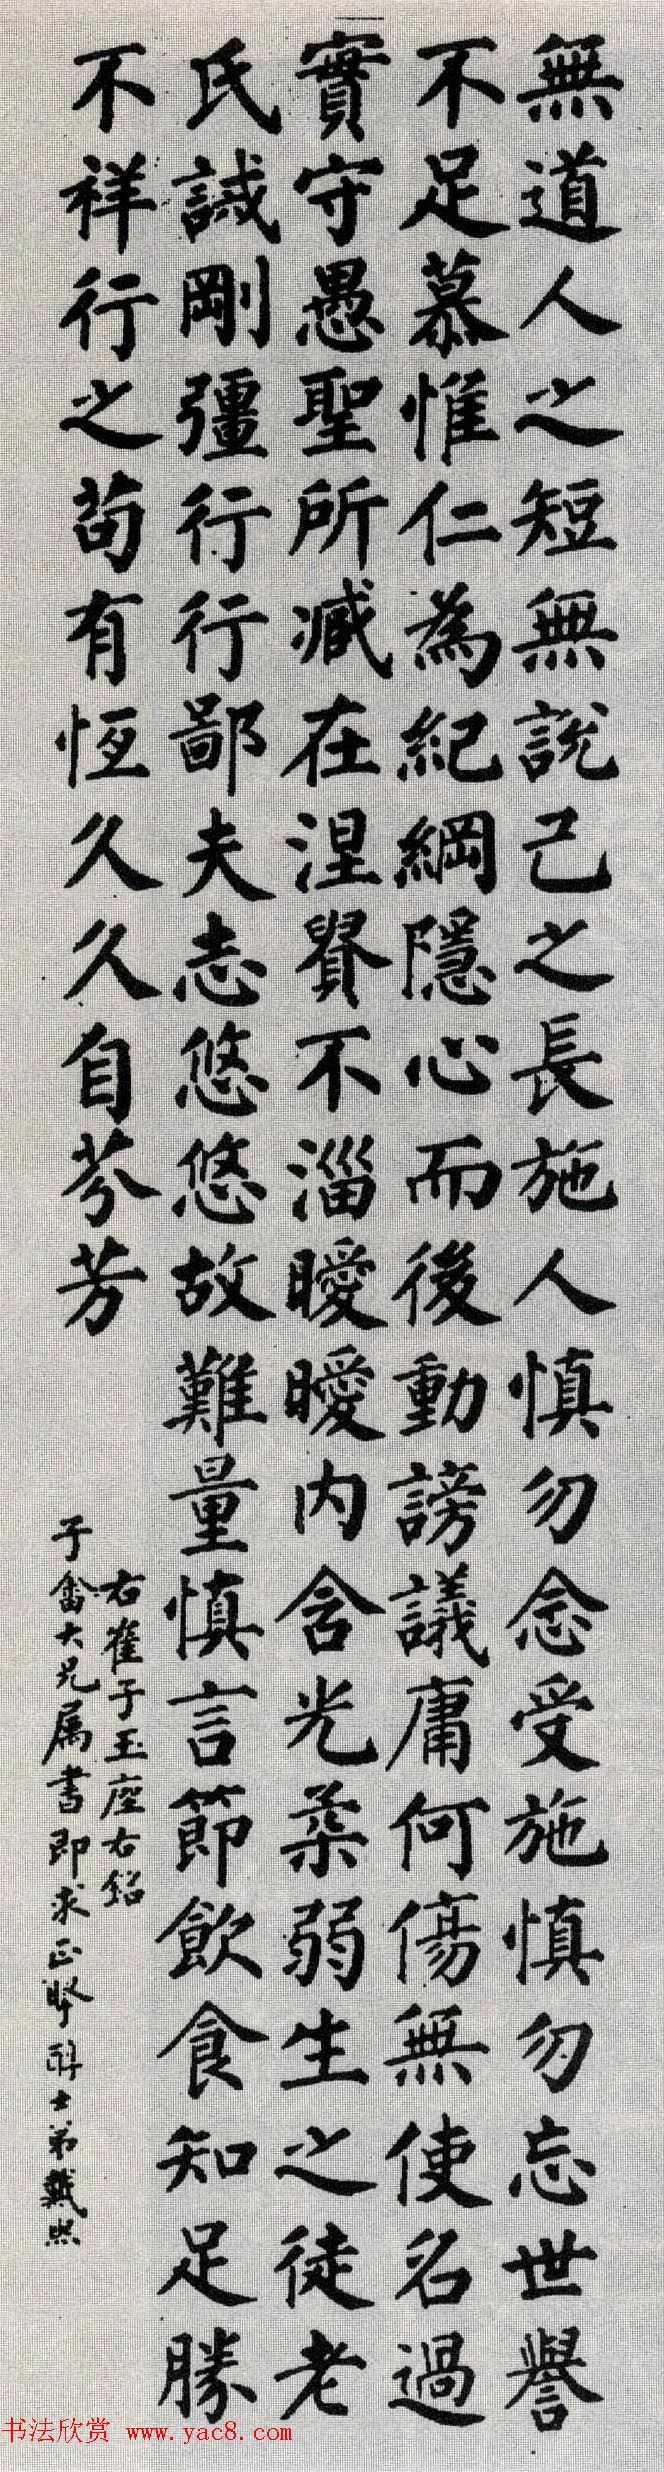 無道人之短無說己之長施人慎勿念受施慎勿忘世譽
不足慕惟仁為紀綱隱心而後動謗議庸何傷無使名過
實守愚聖所臧在涅貴不淄曖曖內含光柔弱生之徒老
氏誡剛彊行行鄙夫志悠悠故難量慎言節飲食知足勝
不祥行之苟有恆久久自芬芳
右崔子玉座右銘
于畬大兄属書即求正 醇士弟戴熙
书法欣赏 www.yac8.com